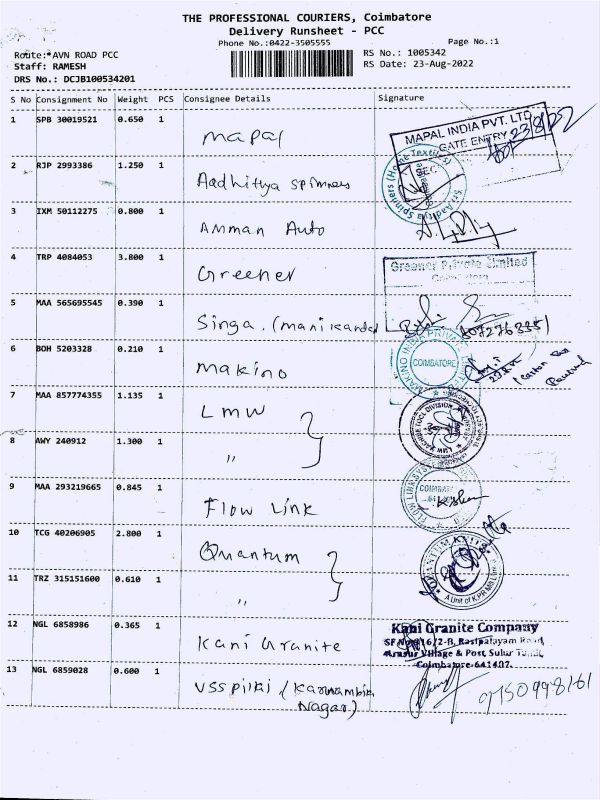 THE PROFESSIONAL COURIERS, Coimbatore
Delivery Runsheet - PCC
Phone No.:0422-3505555
Page No.:1
Route:*AVN ROAD PCC
RS No.: 1005342
Staff: RAMESH
RS Date: 23-Aug-2022
DRS No.: DCJB100534201
S No Consignment No Weight PCS Consignee Details Signature
1 SPB 30019521 0.650 1 Mapal
MAPAL INDIA PVT. LTD
GATE ENTRY 23/8/22
2 RJP 2993386 1.250 1 Aadhitya spinners
Sri Aaditya Spinners (Home Textiles)
SEC.
3 IXM 50112275 0.800 1 Amman Auto
4 TRP 4084053 3.800 1 Greener
Greener Private Limited
Coimbatore
5 MAA 565695545 0.390 1 Singa. (manikanda)
6 BOH 5203328 0.210 1 makino
MAKINO INDIA PRIVATE
COIMBATORE
Carton Box
Received
7 MAA 857774355 1.135 1 LMW
LMW MACHINE TOOL DIVISION
8 AWY 240912 1.300 1 "
9 MAA 293219665 0.845 1 Flow Link
FLOW LINK
10 TCG 40206905 2.800 1 Quantum
QUANTUM
A Unit of KPR Mill
11 TRZ 315151600 0.610 1 "
12 NGL 6858986 0.365 1 Kani Granite
Kani Granite Company
SF No 316/2-B, Rasipalayam Road,
Arasur Village & Post, Sulur
Coimbatore-641407.
13 NGL 6859028 0.600 1 VSS pilki (Karanambik
Nagar)
9750998161